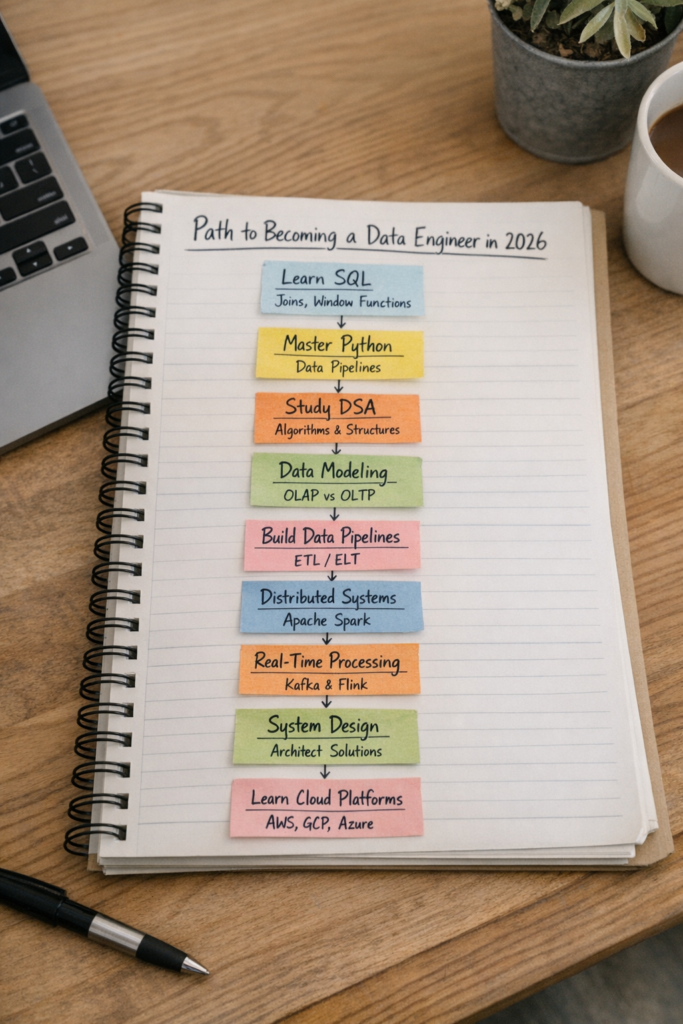 Path to Becoming a Data Engineer in 2026
Learn SQL
Joins, Window Functions
Master Python
Data Pipelines
Study DSA
Algorithms & Structures
Data Modeling
OLAP vs OLTP
Build Data Pipelines
ETL / ELT
Distributed Systems
Apache Spark
Real-Time Processing
Kafka & Flink
System Design
Architect Solutions
Learn Cloud Platforms
AWS, GCP, Azure